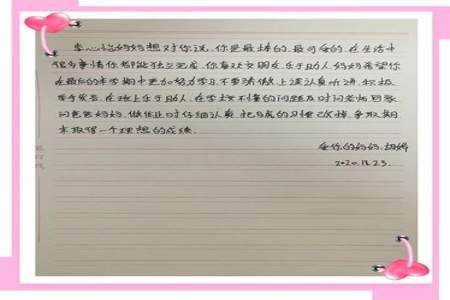 李心怡妈妈想对你说，你是最棒的，最可爱的，在生活中
很多事情你都能独立完成，你喜欢交朋友，乐于助人，妈妈希望你
在最后的半学期中更加努力学习，不要骄傲，上课认真听讲，积极
举手发言，在班上乐于助人，在学校不懂的问题及时问老师，回家
问爸爸妈妈，做作业时仔细认真，把马虎的习惯改掉，争取期
末取得一个理想的成绩。
爱你的妈妈：胡婷
2020.11.23.